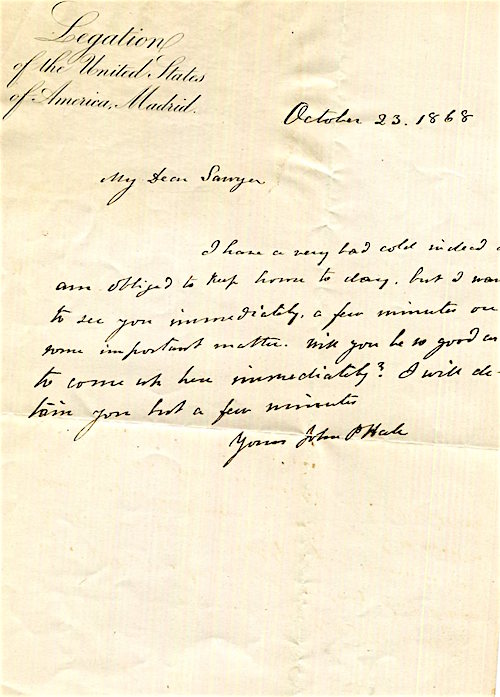 Legation
of the United States
of America, Madrid.
October 23. 1868
My Dear Sawyer
I have a very bad cold indeed
am obliged to keep home to day. but I wan
to see you immediately, a few minutes on
some important matter. Will you be so good as
to come up here immediately? I will de-
tain you but a few minutes
Yours John P Hale